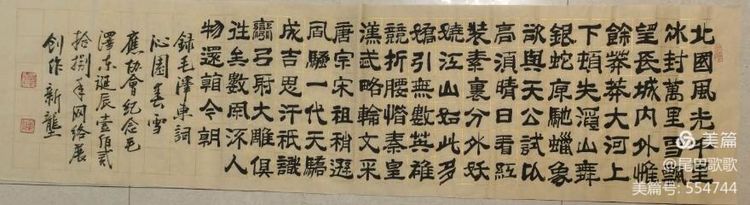 北國風光千里
冰封萬里雪飄
望長城内外惟
餘莽莽大河上
下頓失滔山舞
銀蛇原馳蠟象
欲與天公試比
高須晴日看紅
裝素裹分外妖
嬈江山如此多
嬌引無數英雄
競折腰惜秦皇
漢武略輸文采
唐宗宋祖稍遜
風騷一代天驕
成吉思汗祇識
彎弓射大雕俱
往矣數風流人
物還看今朝
録毛澤東詞
沁園春雪
應協會紀念毛
澤東誕辰壹佰貳
拾捌年网絡展
創作 新龔
美篇
尾巴歌歌
美篇号: 554744